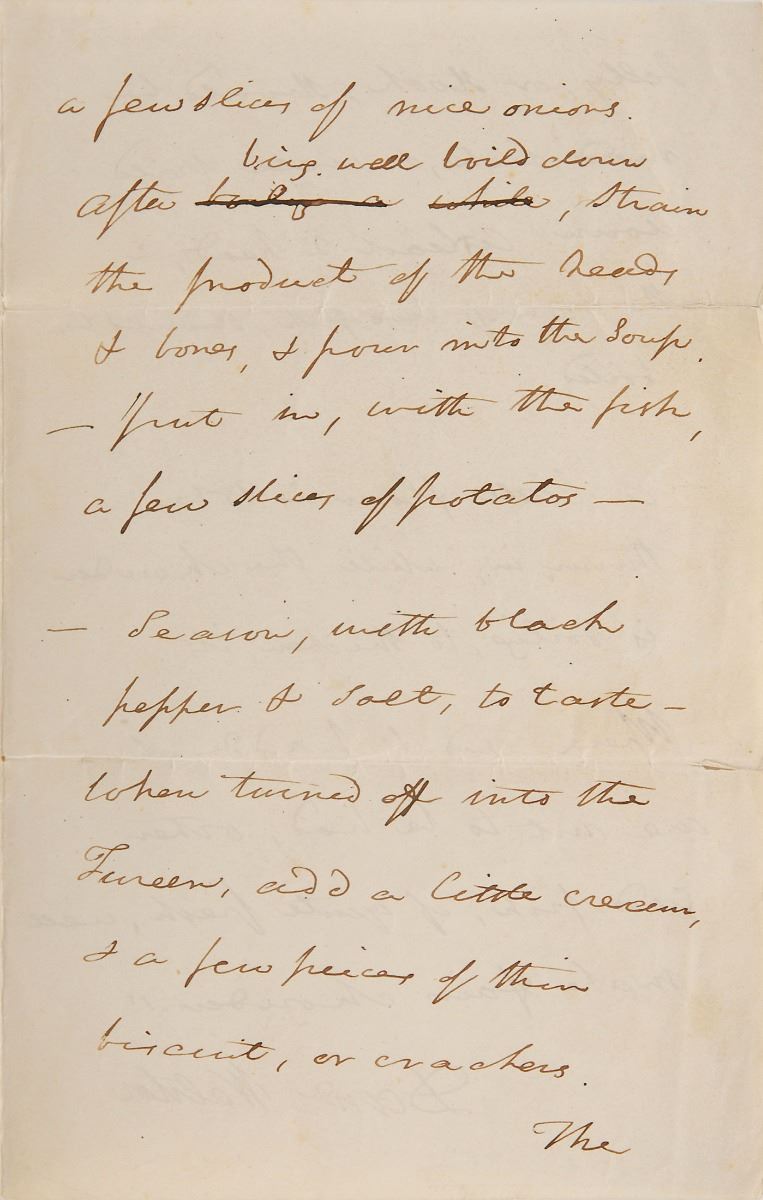 a few slices of nice onions.
being well boild down
After boiling a while, strain
the product of the heads
& bones, & pour into the Soup.
— Put in, with the fish,
a few slices of potatos —
— Season, with black
pepper & Salt, to taste —
When turned off into the
Tureen, add a little cream,
& a few peices of thin
biscuit, or crackers.
The